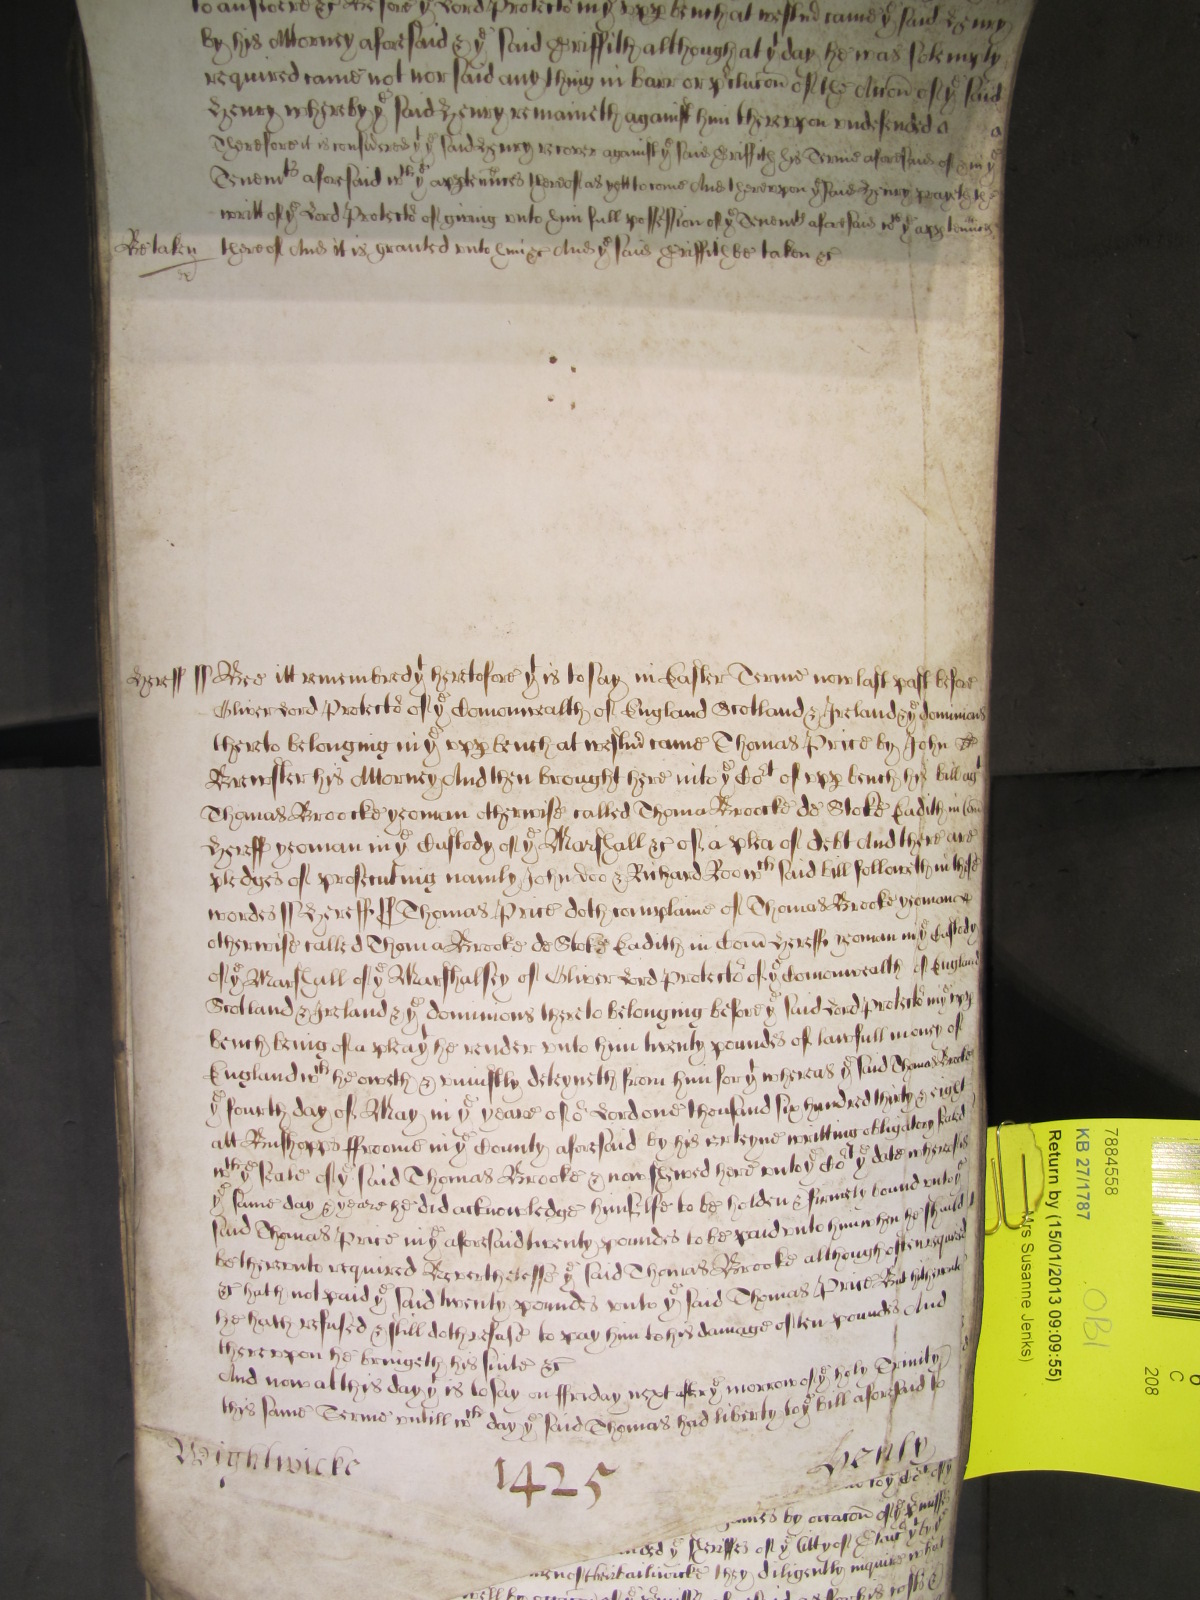 to answere &c Before ye Lord Protector in ye upp bench at westmr came ye said Henry
by his Attorney aforesaid & ye said Griffith although at yt day he was solemnly
required came not nor said any thing in barr or of the Accon of ye said
Henry whereby ye said Henry remaineth against him thereupon undefended
Therefore it is considered yt ye said Henry recover against ye said Griffith his Terme aforesaid of & in ye
Tenemts aforesaid wth ye apptennces thereof as yett to come And thereupon ye said Henry prayeth the
writt of ye Lord Protector of giving unto him full possession of ye Tenemts aforesaid wth ye apptennces
Be taken thereof And it is granted unto him &c And ye said Griffith be taken &c
Hereff ss Bee itt remembred yt heretofore yt is to say in Easter Terme now last past before
Oliver Lord Protector of ye Comonwealth of England Scotland & Ireland & ye dominions
thereto belonging in ye upp bench at westmr came Thomas Price by John
Brewster his Attorney And then brought here into ye Cort of upp bench his bill agt
Thomas Broocke yeoman otherwise called Thoma Broocke de Stoke Eadith in Com
Hereff yeoman in ye Custody of ye Marshall &c of a plea of debt And there are
pledges of prosecuting namly John Doo & Richard Roo wch said bill followeth in these
wordes ss Hereff ss Thomas Price doth complaine of Thomas Brooke yeoman
otherwise called Thoma Brooke de Stoke Eadith in Com Hereff yeoman in ye Custody
of ye Marshall of ye Marshalsey of Oliver Lord Protector of ye Comonwealth of England
Scotland & Ireland & ye dominions thereto belonging before ye said Lord Protector in ye upp
bench being of a plea yt he render unto him twenty poundes of lawfull money of
England wch he oweth & uniustly deteyneth from him for yt whereas ye said Thomas Brooke
ye fourth day of May in ye yeare of or Lord one thousand six hundred thirty & eight
att Bushopps ffroome in ye County aforesaid by his certeyne writting obligatory seald
wth ye seale of ye said Thomas Brooke & now shewed here unto ye Cort ye date whereof is
ye same day & yeare he did acknowledge himselfe to be holden & firmely bound unto ye
said Thomas Price in ye aforesaid twenty poundes to be paid unto him when he should
be thereunto required Neverthelesse ye said Thomas Brooke although often required
&c hath not paid ye said twenty poundes unto ye said Thomas Price But hitherunto
he hath refused & still doth refuse to pay him to his damage of ten poundes And
thereupon he bringeth his suite &c
And now at this day yt is to say on ffriday next after ye morrow of ye holy Trinity
this same Terme untill wch day ye said Thomas had liberty to ye bill aforesaid to
Wightwicke 1425 Henly
to ye Cort of ye
by occacon of ye pmisses
ye Sheriffes of ye Citty of
their bailiwicke they diligently inquire what
7884558
KB 27/1787
Return by (15/01/2013 09:09:55)
Mrs Susanne Jenks)
OBI
C
208